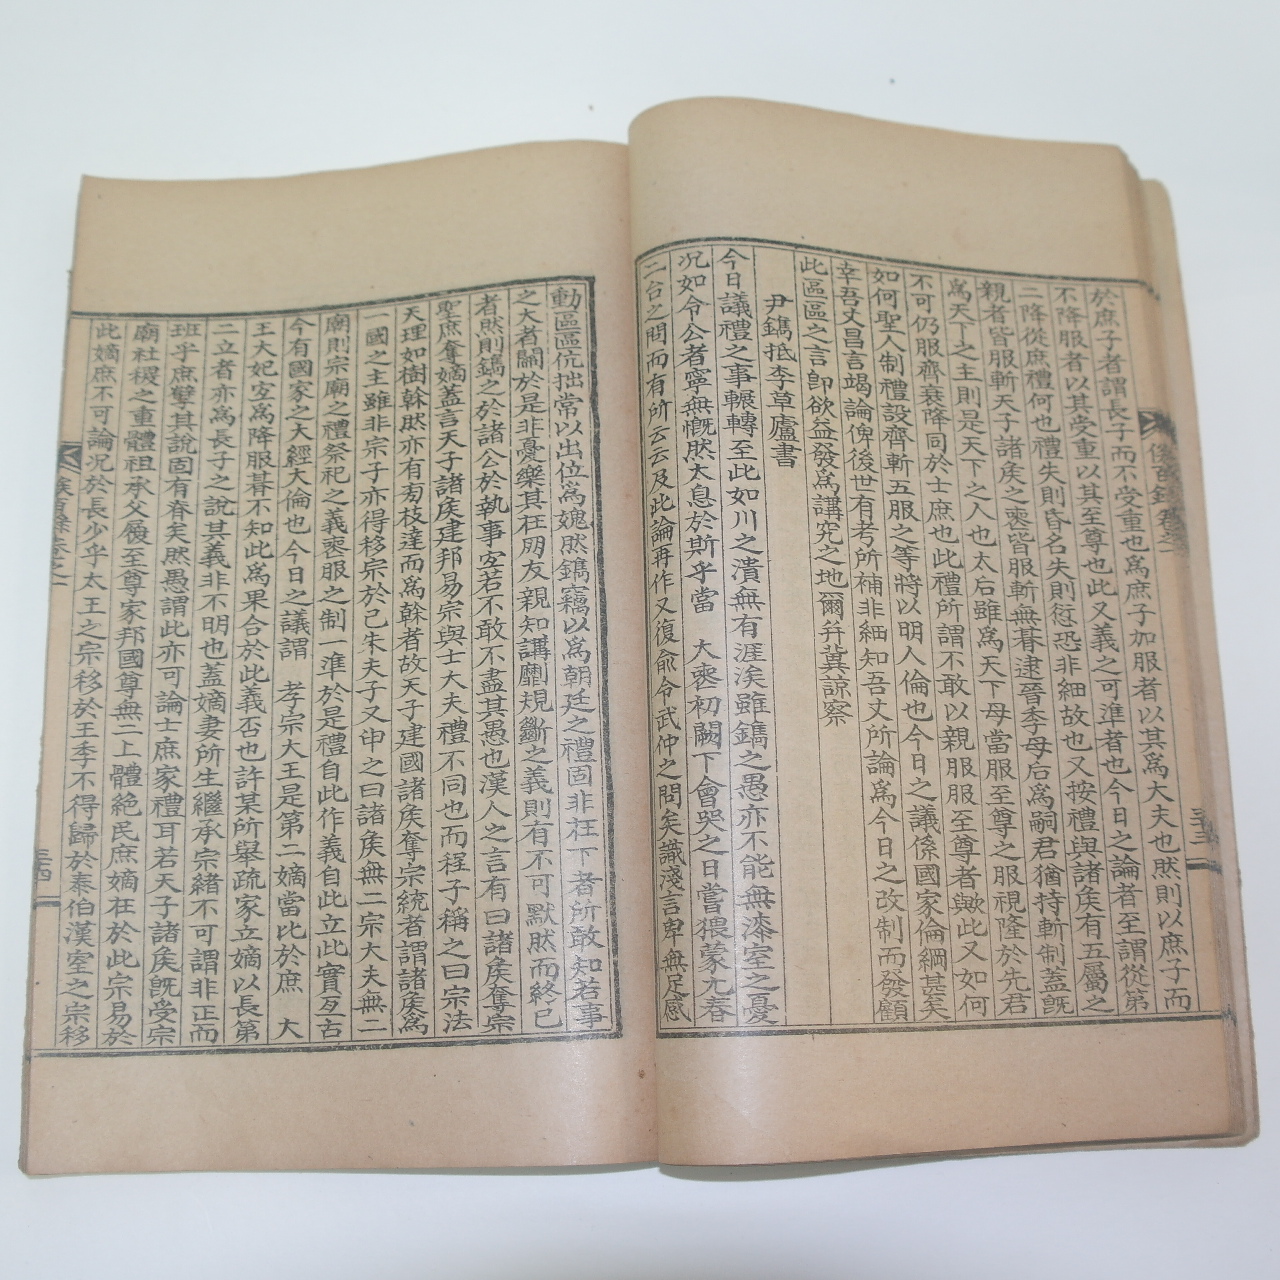 於庶子者謂長子而不受重也爲庶子加服者以其爲大夫也然則以庶子而
不降服者以其受重以其至尊也此又義之可準者也今日之論者至謂從第
二降從庶禮何也禮失則昏名失則愆恐非細故也又按禮與諸侯有五屬之
親者皆服斬天子諸侯之喪皆服斬無朞逮晉李母后爲嗣君猶持斬制蓋旣
爲天下之主則是天下之人也太后雖爲天下母當服至尊之服視隆於先君
不可仍服齊衰降同於士庶也此禮所謂不敢以親服服至尊者歟此又如何
如何聖人制禮設齊斬五服之等將以明人倫也今日之議係國家倫綱甚矣
幸吾丈昌言竭論俾後世有考所補非細知吾丈所論爲今日之改制而發顧
此區區之言卽欲益發爲講究之地爾幷冀諒察
尹鑴抵李草廬書
今日議禮之事輾轉至此如川之潰無有涯涘雖鑴之愚亦不能無漆室之憂
况如令公者寧無慨然太息於斯乎當 大喪初闕下會哭之日嘗猥蒙尤春
二台之問而有所云云及此論再作又復兪令武仲之問矣識淺言卑無足感
俟百錄卷之一
三十三
動區區伉拙常以出位爲媿然鑴竊以爲朝廷之禮固非在下者所敢知若事
之大者關於是非憂樂其在朋友親知講劘規斷之義則有不可默然而終已
者然則鑴之於諸公於執事安若不敢不盡其愚也漢人之言有曰諸侯奪宗
聖庶奪嫡蓋言天子諸侯建邦易宗與士大夫禮不同也而程子稱之曰宗法
天理如樹榦然亦有旁枝達而爲榦者故天子建國諸侯奪宗統者謂諸侯爲
一國之主雖非宗子亦得移宗於己朱夫子又申之曰諸侯無二宗大夫無二
廟則宗廟之禮祭祀之義喪服之制一準於是禮自此作義自此立此實亙古
今有國家之大經大倫也今日之議謂 孝宗大王是第二嫡當比於庶 大
王大妃宜爲降服朞不知此爲果合於此義否也許某所舉疏家立嫡以長第
二立者亦爲長子之說其義非不明也蓋嫡妻所生繼承宗緒不可謂非正而
班乎庶孼其說固有眷矣然愚謂此亦可論士庶家禮耳若天子諸侯旣受宗
廟社稷之重體祖承父履至尊家邦國尊無二上體絶民庶嫡在於此宗易於
此嫡庶不可論况於長少乎太王之宗移於王季不得歸於泰伯漢室之宗移
俟百錄卷之一
三十四